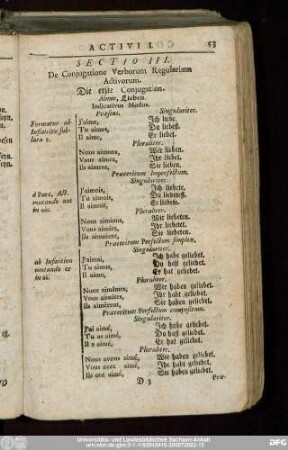 ACTIVI I.
53
SECTIO III.
De Conjugatione Verborum Regularium
Activorum.
Die erste Conjugation.
Aimer, Lieben.
Indicativus Modus.
Præsens. Singulariter.
Formatur ab
Infinitivo sub-
lato r.
J'aime, Ich liebe.
Tu aimes, Du liebest.
Il aime, Er liebet.
Pluraliter.
Nous aimons, Wir lieben.
Vous aimez, Ihr liebet.
Ils aiment, Sie lieben.
Præteritum Imperfectum.
Singulariter.
mutando ont
in ois.
J'aimois, Ich liebete.
Tu aimois, Du liebetest.
Il aimoit, Er liebete.
Pluraliter.
Nous aimions, Wir liebeten.
Vous aimiez, Ihr liebetet.
Ils aimoient, Sie liebeten.
Præteritum Perfectum simplex.
Singulariter.
ab Infinitivo
mutando er
in ai.
J'aimai, Ich habe geliebet.
Tu aimas, Du hast geliebet.
Il aima, Er hat geliebet.
Pluraliter.
Nous aimâmes, Wir haben geliebet.
Vous aimâtes, Ihr habt geliebet.
Ils aimérent, Sie haben geliebet.
Præteritum Perfectum compositum.
Singulariter.
J'ai aimé, Ich habe geliebet.
Tu as aimé, Du hast geliebet.
Il a aimé, Er hat geliebet.
Pluraliter.
Nous avons aimé, Wir haben geliebet.
Vous avez aimé, Ihr habt geliebet.
Ils ont aimé, Sie haben geliebet.
D 3
Præ-
Universitäts- und Landesbibliothek Sachsen-Anhalt